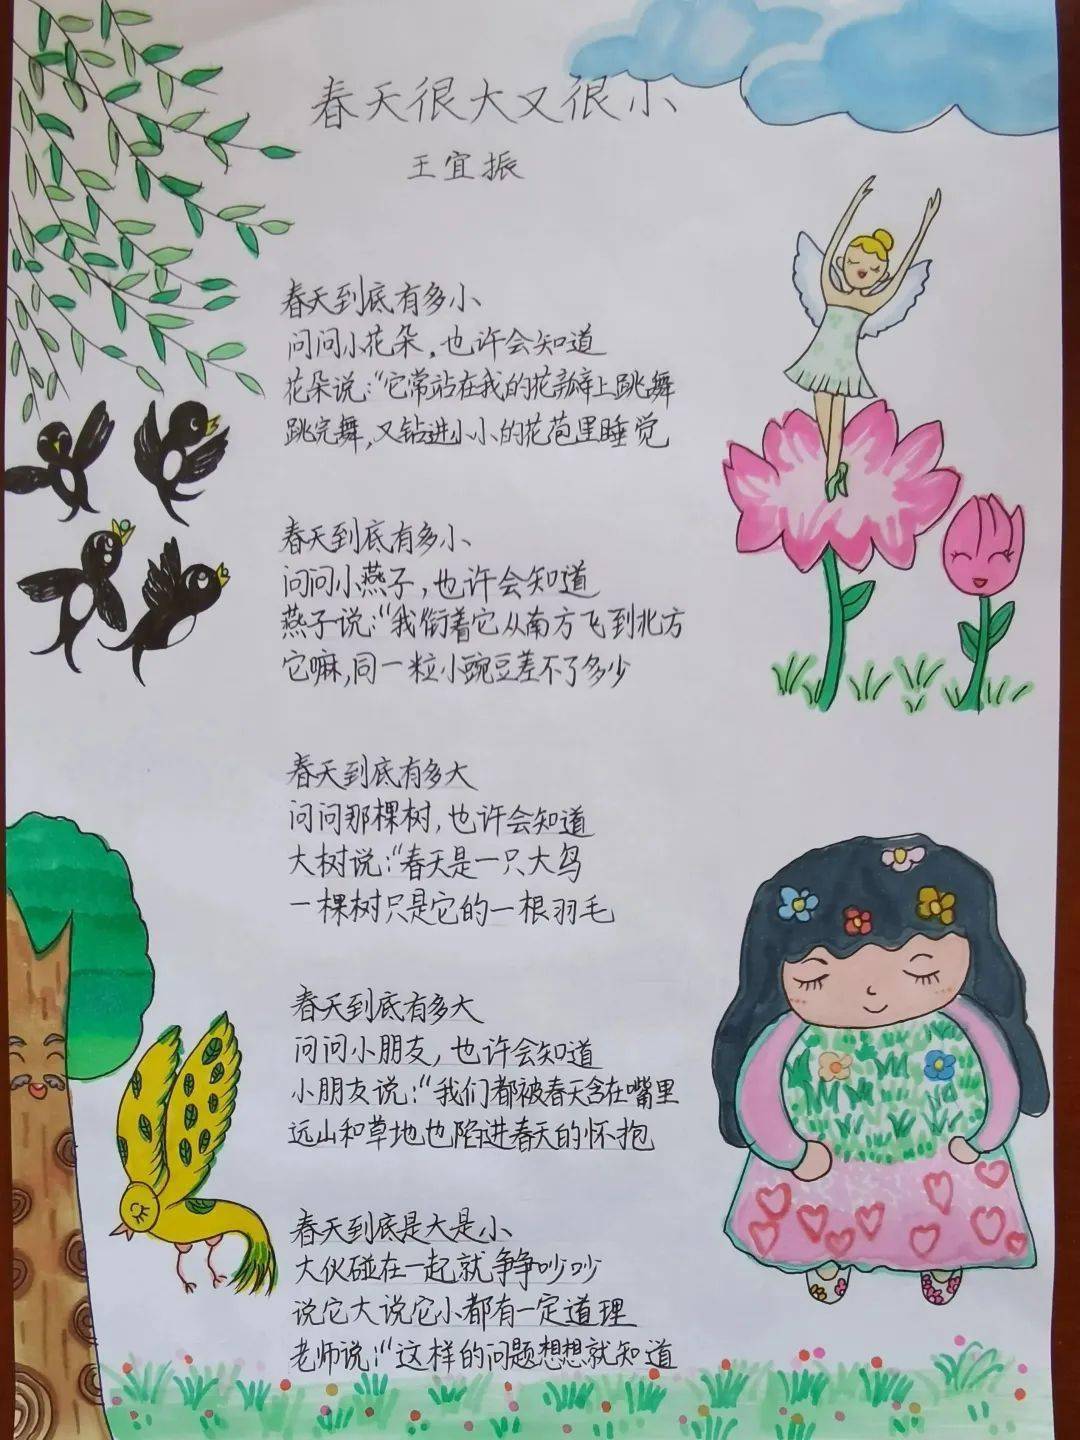 春天很大又很小
王宜振
春天到底有多小
问问小花朵，也许会知道
花朵说：“它常站在我的花瓣上跳舞
跳完舞，又钻进小小的花苞里睡觉
春天到底有多小
问问小燕子，也许会知道
燕子说：“我衔着它从南方飞到北方
它嘛，同一粒小豌豆差不了多少
春天到底有多大
问问那棵树，也许会知道
大树说：“春天是一只大鸟
一棵树只是它的一根羽毛
春天到底有多大
问问小朋友，也许会知道
小朋友说：“我们都被春天含在嘴里
远山和草地也陷进春天的怀抱
春天到底是大是小
大伙碰在一起就争争吵吵
说它大说它小都有一定道理
老师说：“这样的问题想想就知道